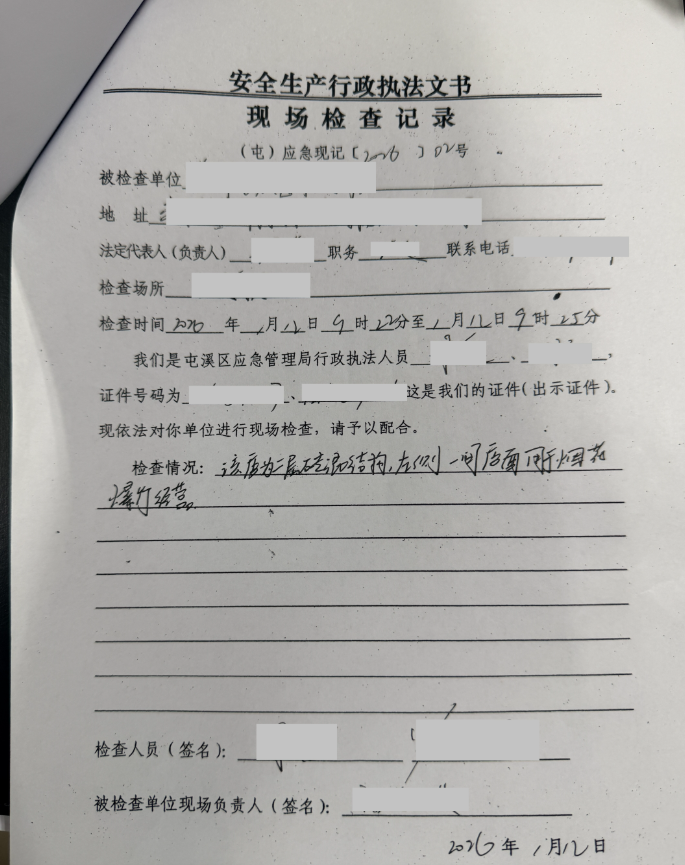 安全生产行政执法文书
现场检查记录
（屯）应急现记〔2026〕02号
被检查单位
地 址
法定代表人（负责人） 职务 联系电话
检查场所
检查时间 2026 年 1 月 12 日 9 时 22 分至 1 月 12 日 9 时 25 分
我们是屯溪区应急管理局行政执法人员 、 ，
证件号码为 、 这是我们的证件（出示证件）。
现依法对你单位进行现场检查，请予以配合。
检查情况：该店为二层砖混结构，左侧一间店面用于烟花
爆竹经营
检查人员（签名）：
被检查单位现场负责人（签名）：
2026 年 1 月 12 日